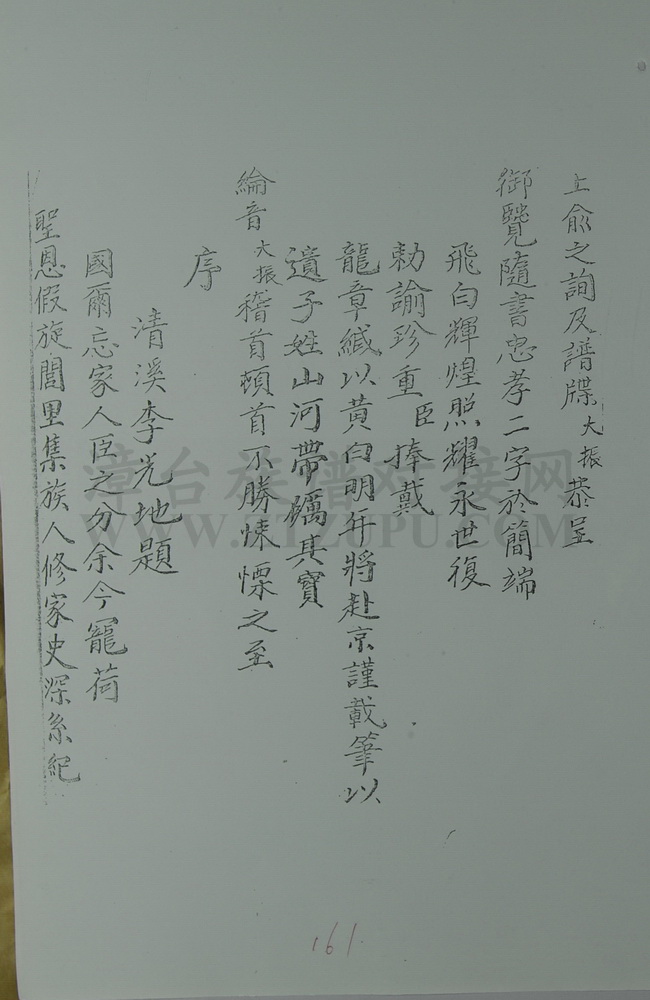 上俞之詢及譜牒大振恭呈
御覽隨書忠孝二字於簡端
飛白輝煌照耀永世復
勅諭珍重臣捧戴
龍章緘以黃白明年將赴京謹載筆以
遺子姓山河帶礪其寶
綸音大振稽首頓首不勝悚慄之至
序
清溪李光地題
國爾忘家人臣之分余今寵荷
聖恩假旋閭里集族人修家史深系紀
漳台族譜对接网
WWW.ZTZUPU.COM
161